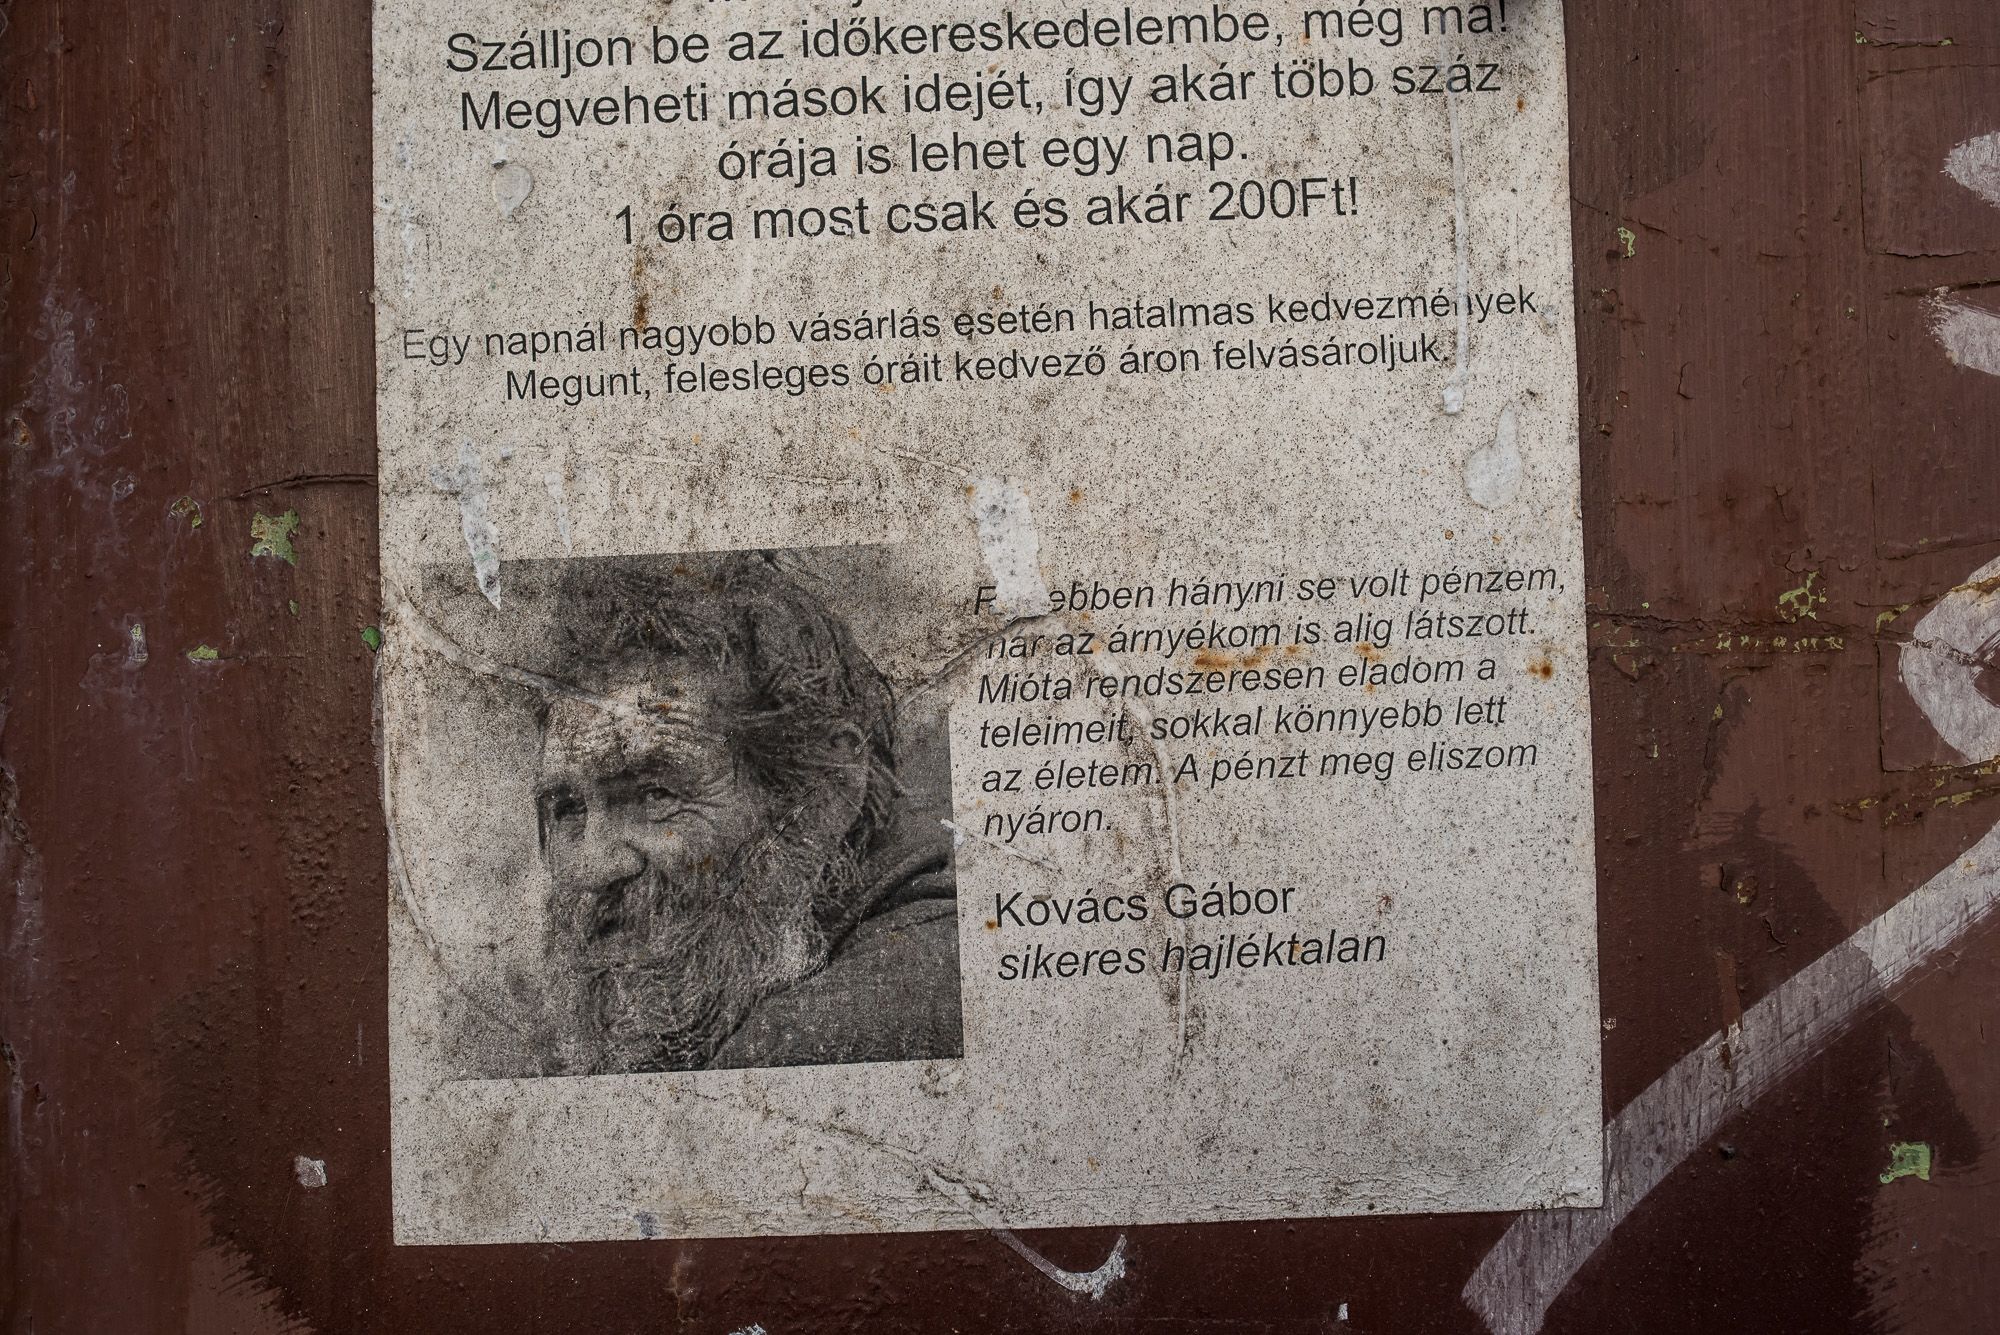 Szálljon be az időkereskedelembe, még ma!
Megveheti mások idejét, így akár több száz
órája is lehet egy nap.
1 óra most csak és akár 200Ft!
Egy napnál nagyobb vásárlás esetén hatalmas kedvezmények
Megunt, felesleges óráit kedvező áron felvásároljuk.
hányni se volt pénzem,
már az árnyékom is alig látszott.
Mióta rendszeresen eladom a
teleimeit, sokkal könnyebb lett
az életem. A pénzt meg eliszom
nyáron.
Kovács Gábor
sikeres hajléktalan